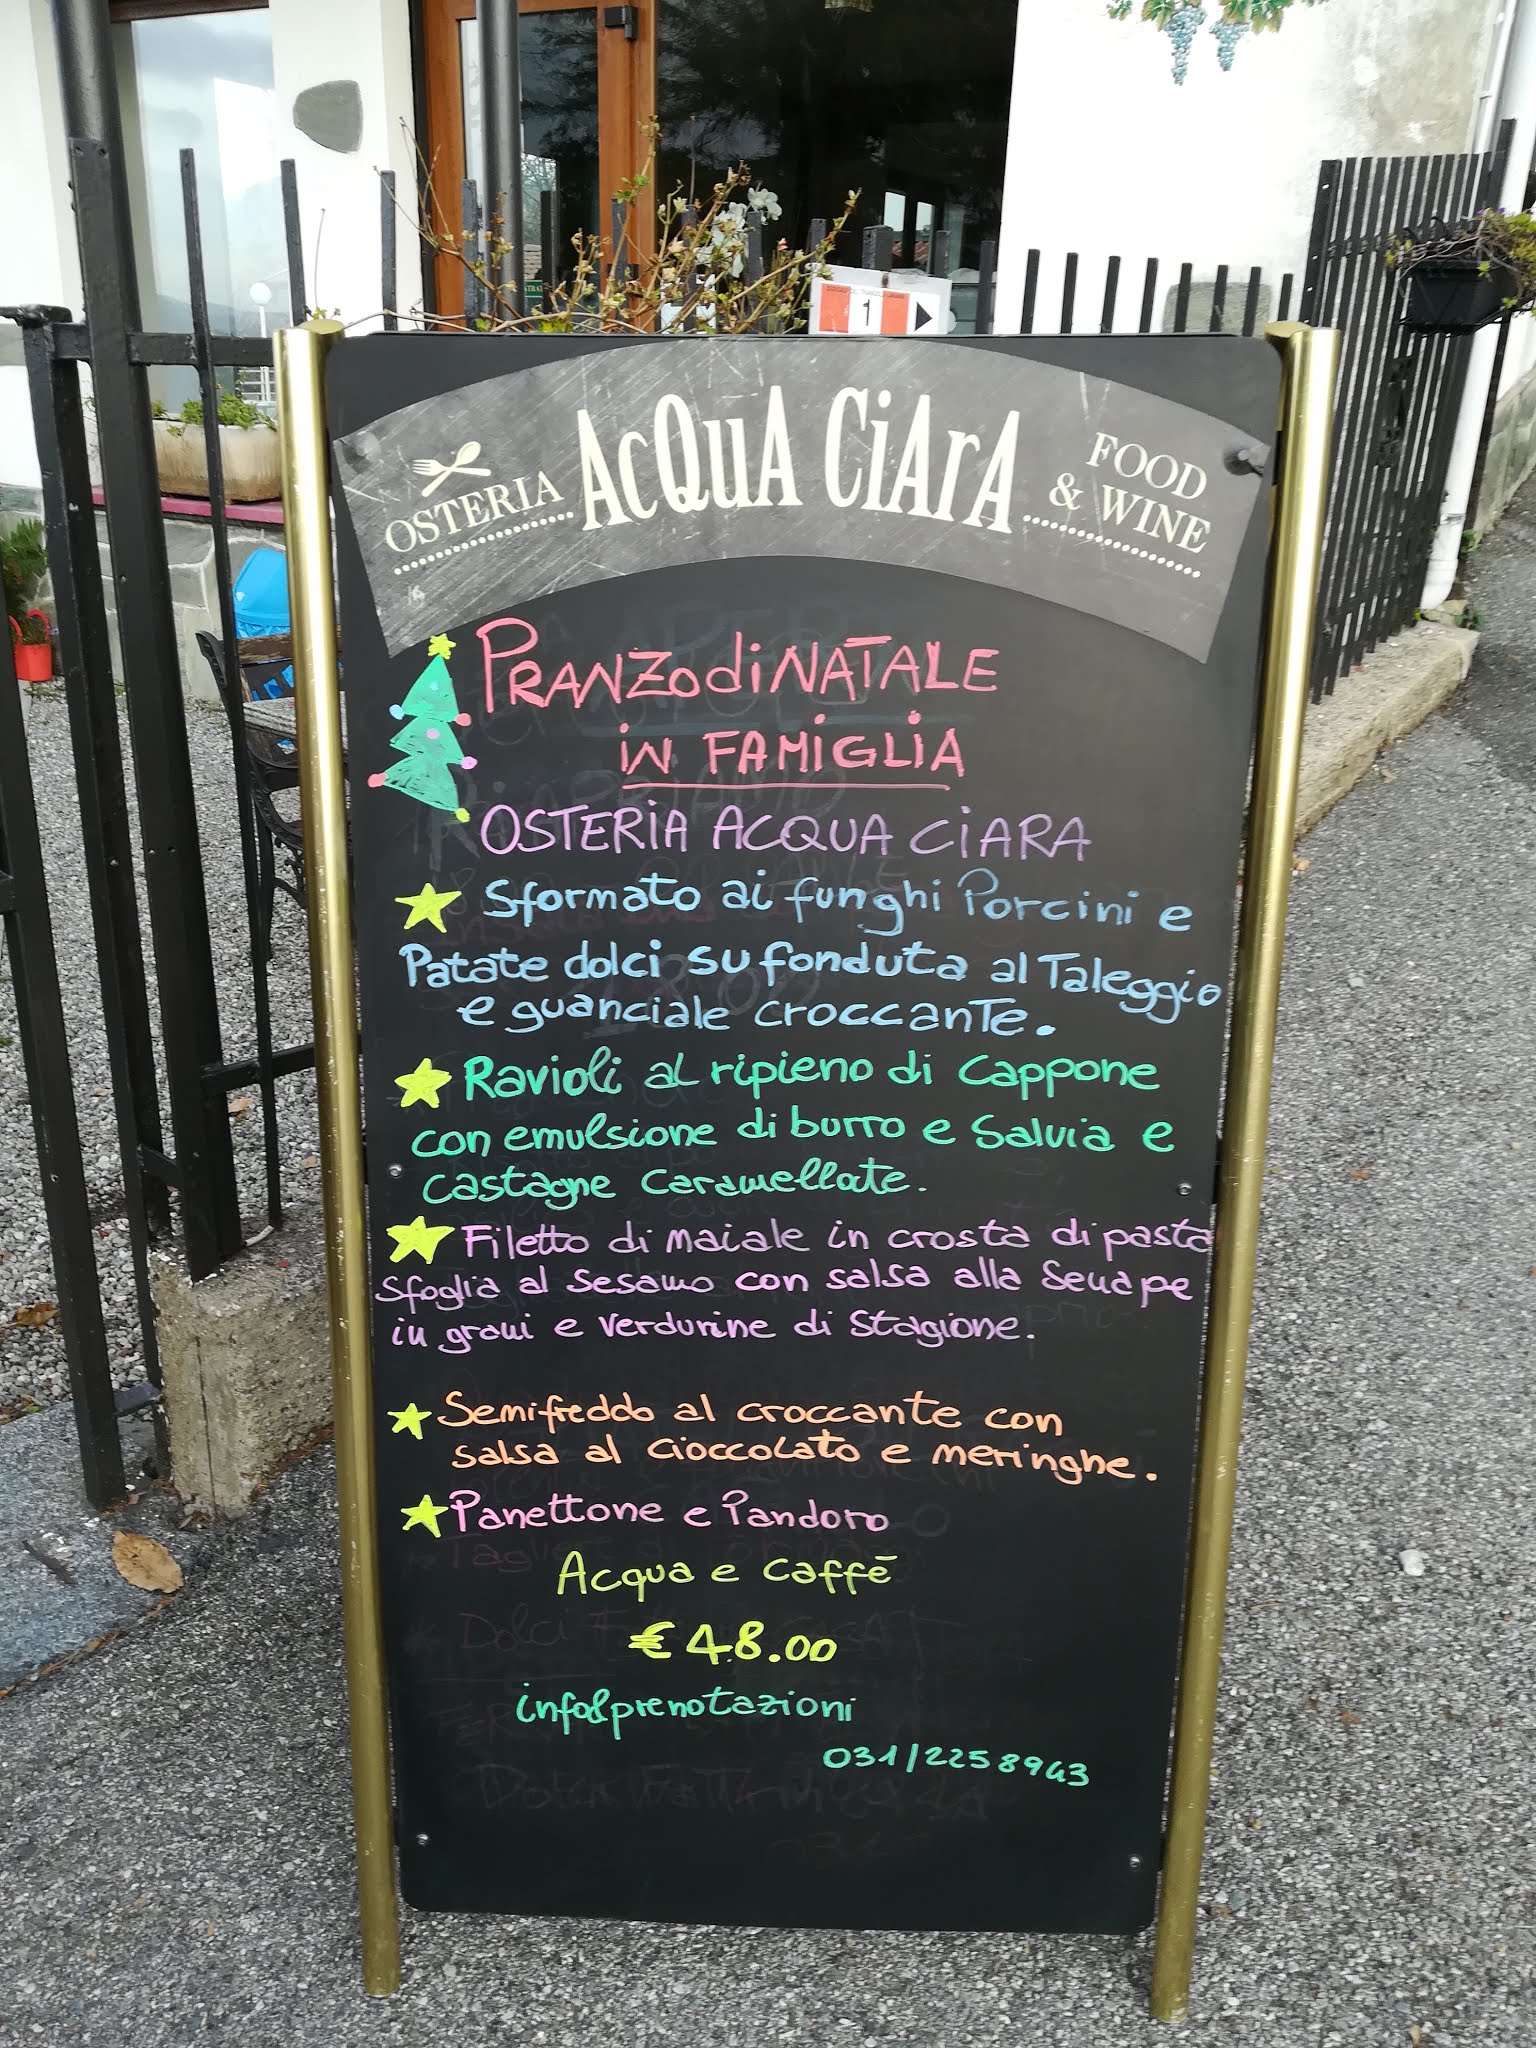 OSTERIA ACQUA CIARA FOOD & WINE
1
PRANZO di NATALE
in FAMIGLIA
OSTERIA ACQUA CIARA
Sformato ai funghi Porcini e
Patate dolci su fonduta al Taleggio
e guanciale croccante.
Ravioli al ripieno di Cappone
con emulsione di burro e Salvia e
Castagne Caramellate.
Filetto di Maiale in crosta di pasta
sfoglia al Sesamo con salsa alla Senape
in grani e verdurine di Stagione.
Semifreddo al croccante con
salsa al cioccolato e meringhe.
Panettone e Pandoro
Acqua e Caffè
€ 48.00
info&prenotazioni
031/2258943